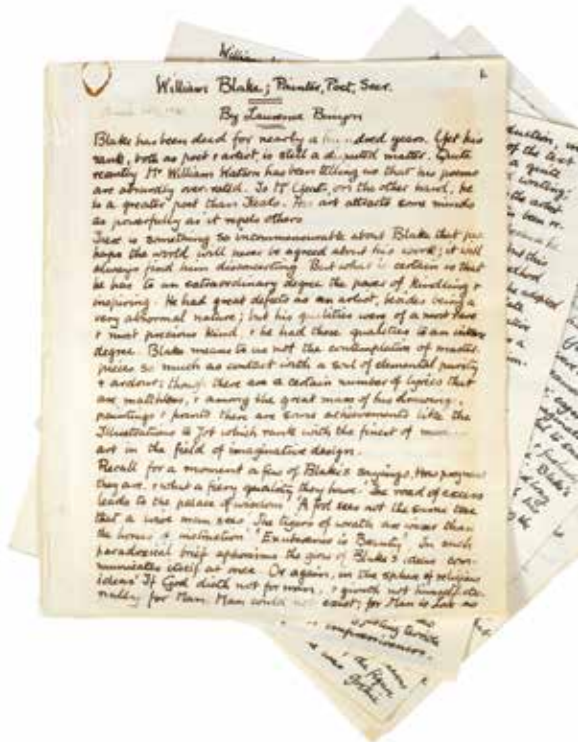 1.
William Blake; Painter, Poet, Seer.
By Laurence Binyon
Blake has been dead for nearly a hundred years. Yet his
rank, both as poet & artist, is still a disputed matter. Quite
recently Mr William Watson has been telling us that his poems
are absurdly over-rated. To Mr on the other hand, he
is a greater poet than Keats. His art attracts some minds
as powerfully as it repels others
There is something so incommensurable about Blake that per
haps the world will never be agreed about his work; it will
always find him disconcerting. But what is certain is that
he has to an extraordinary degree the power of kindling &
inspiring. He had great defects as an artist, besides being a
very abnormal nature; but his qualities were of a most rare
& most precious kind, & he had those qualities to an intense
degree. Blake means to us not the contemplation of master-
pieces so much as contact with a soul of elemental purity
& ardour; though there are a certain number of lyrics that
are matchless, & among the great mass of his drawings,
paintings & prints there are some achievements like the
Illustrations to Job which rank with the finest of
art in the field of imaginative design.
Recall for a moment a few of Blake's sayings. How pregnant
they are, & what a fiery quality they have. 'The road of excess
leads to the palace of wisdom.' 'A fool sees not the same tree
that a wise man sees.' 'The tigers of wrath are wiser than
the horses of instruction.' 'Exuberance is Beauty.' In such
paradoxical brief aphorisms the of Blake's ideas com-
municates itself at once. Or again, in the sphere of religious
ideas 'If God dieth not for man, & giveth not himself ete-
rnally for Man, Man could not exist; for Man is Love as
impressiveness.
the figure
gothic